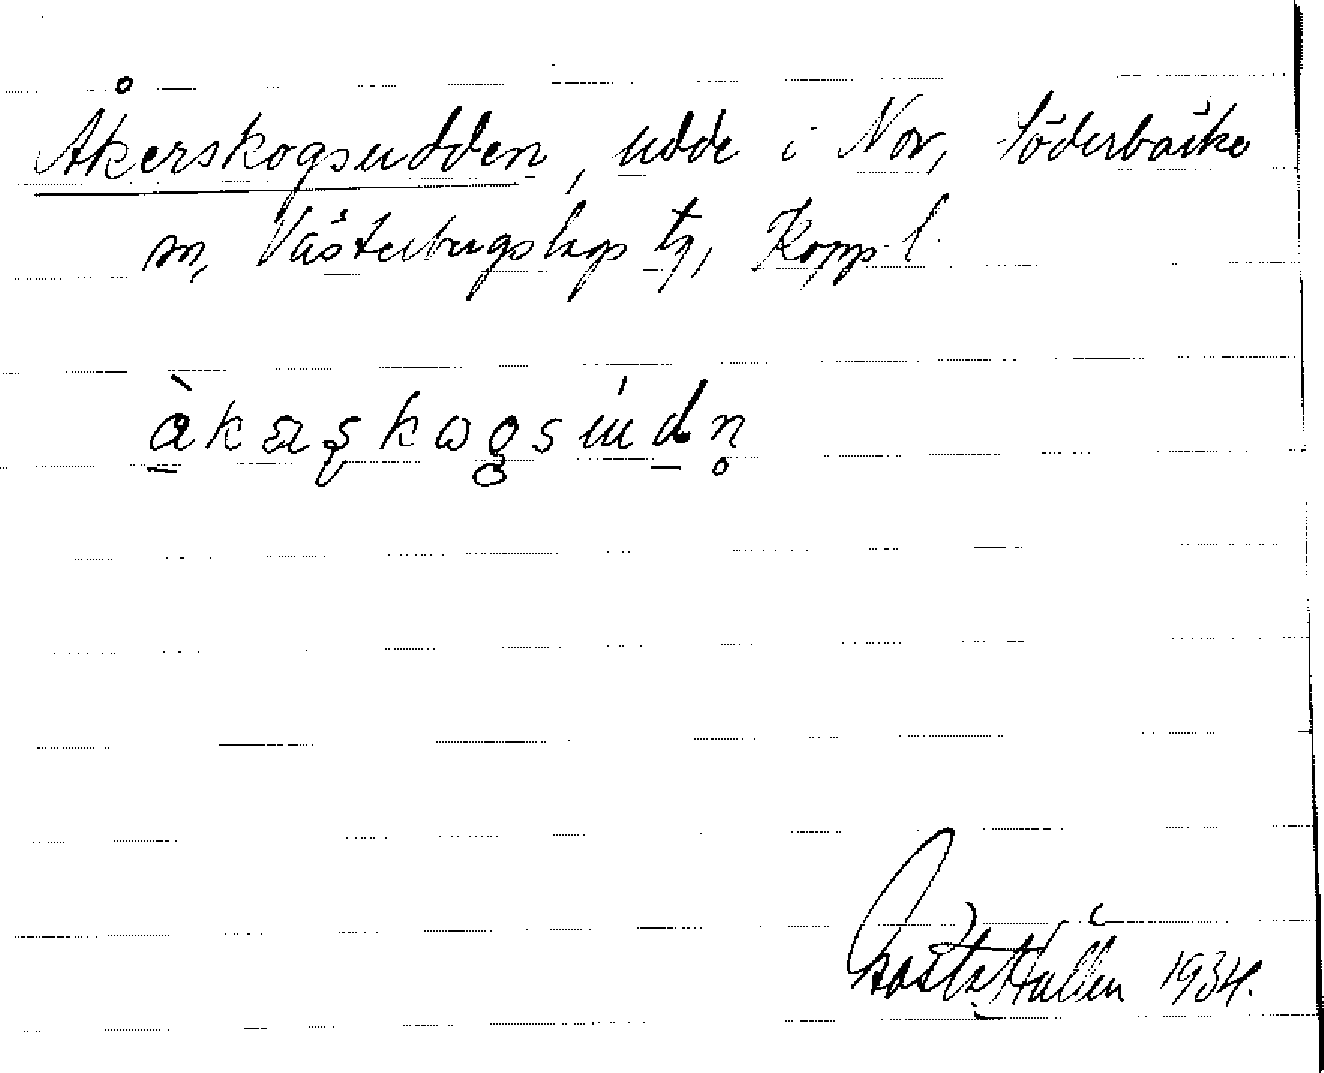 Åkerskogsudden, udde i Nor, Söderbärke
sn, Västerbergslags tg, Kopp. l.
Gösta Hallén 1934.